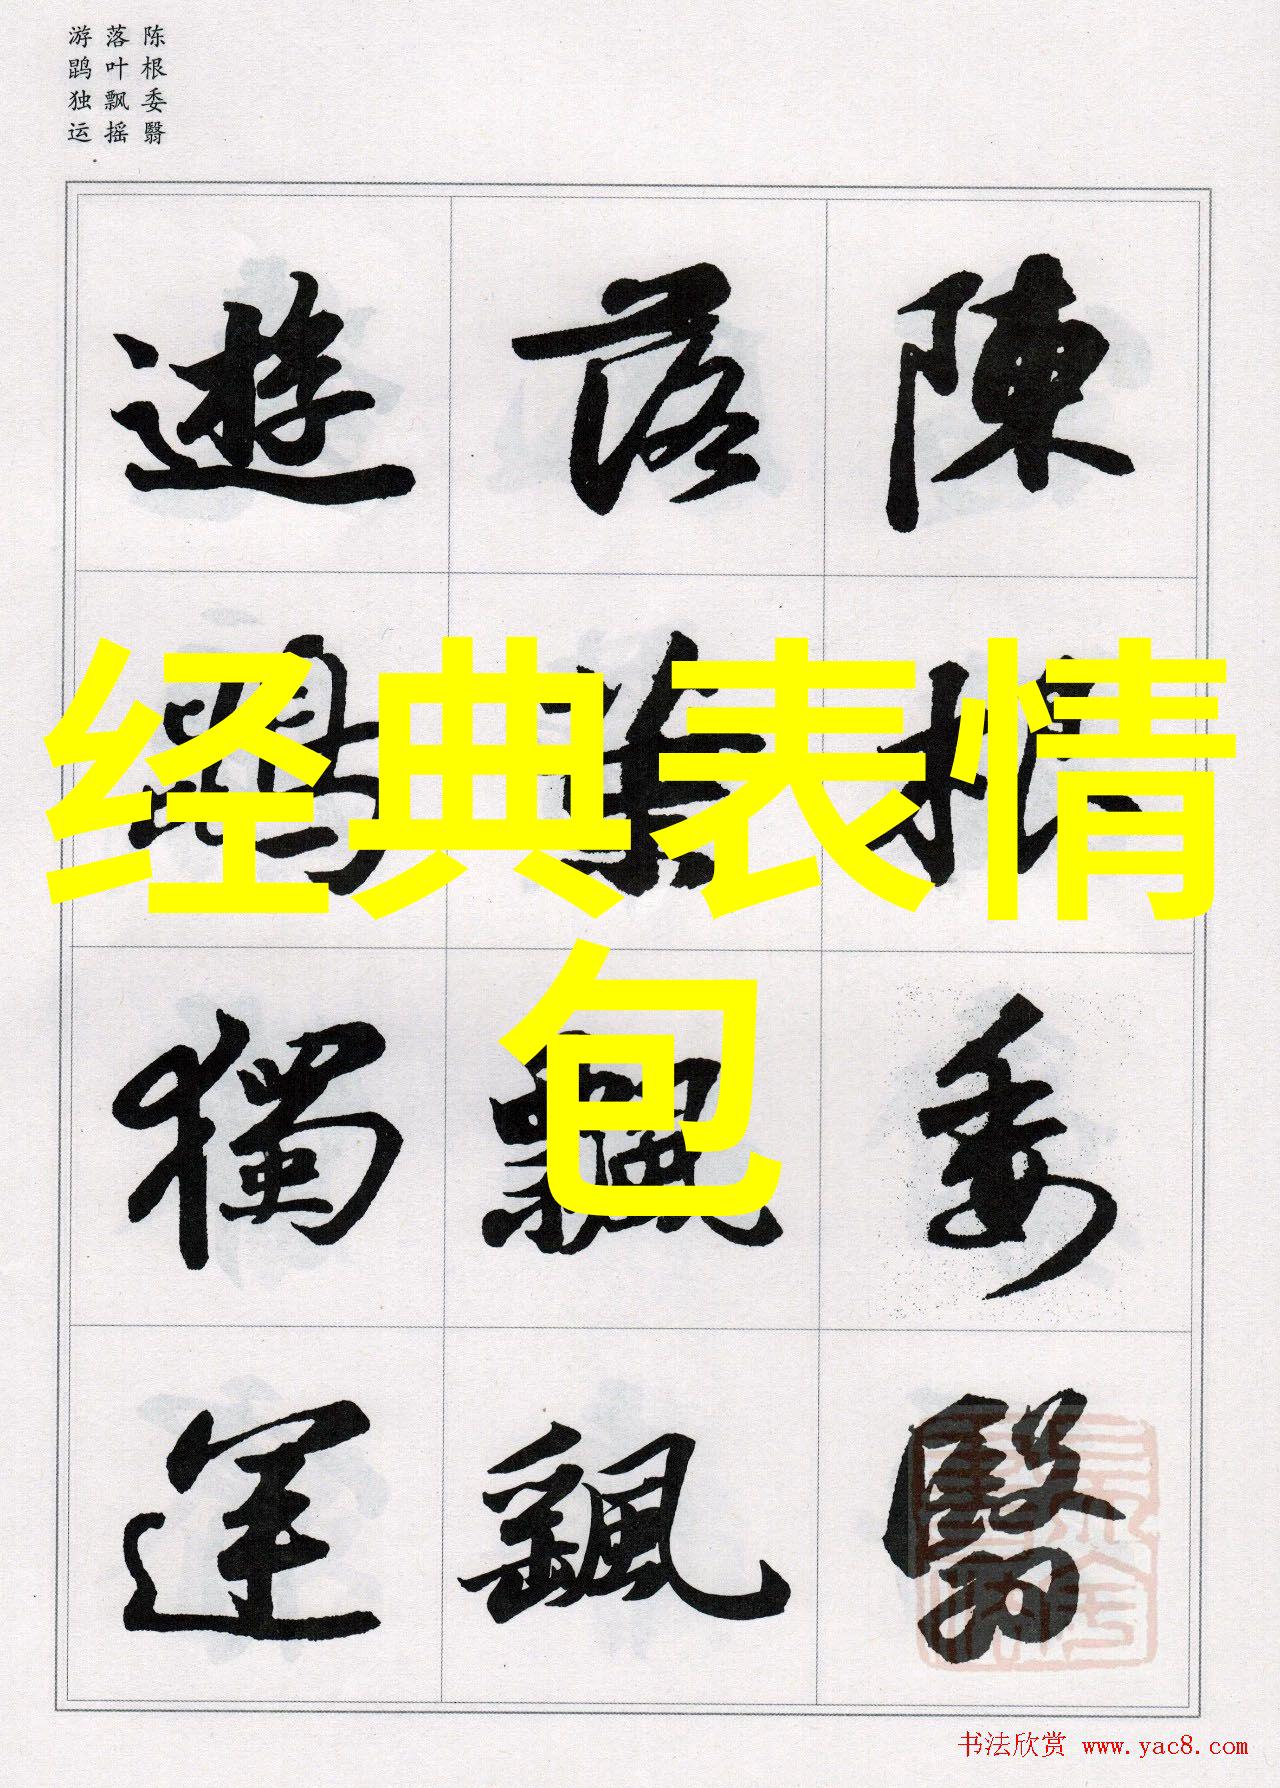 陈根委翳
落叶飘摇
游鹍独运
陳根委翳
落葉飄颻
遊鵾獨運
经典表情
包
书法欣赏 www.yac8.com